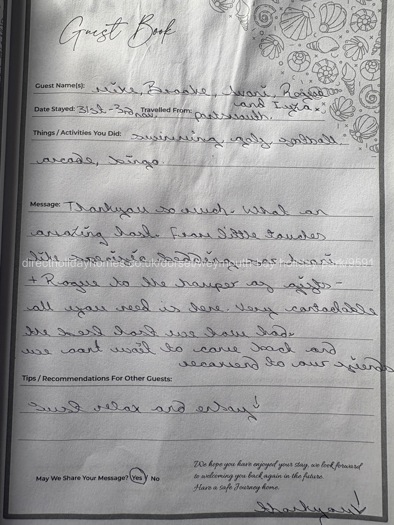 Guest Book
Guest Name(s): Mike, Brooke, Imani, Rogue
and Inga x
Date Stayed: 31st - 3rd nov. Travelled From: portsmouth.
Things / Activities You Did: swimming, softball,
arcade, bingo
Message: Thankyou so much. What an
amazing host. From little touches
like bedding for Imani
directholidayhomes.co.uk/dorset/weymouth-bay-holiday-park/9591
+ Rogue to the hamper of gifts -
all you need is here. Very comfortable
the best host we have had.
we cant wait to come back and
recomend to our friends
Tips / Recommendations For Other Guests:
Just relax and enjoy!
We hope you have enjoyed your stay, we look forward
to welcoming you back again in the future.
Have a safe Journey home.
May We Share Your Message? Yes / No
Thankyou!